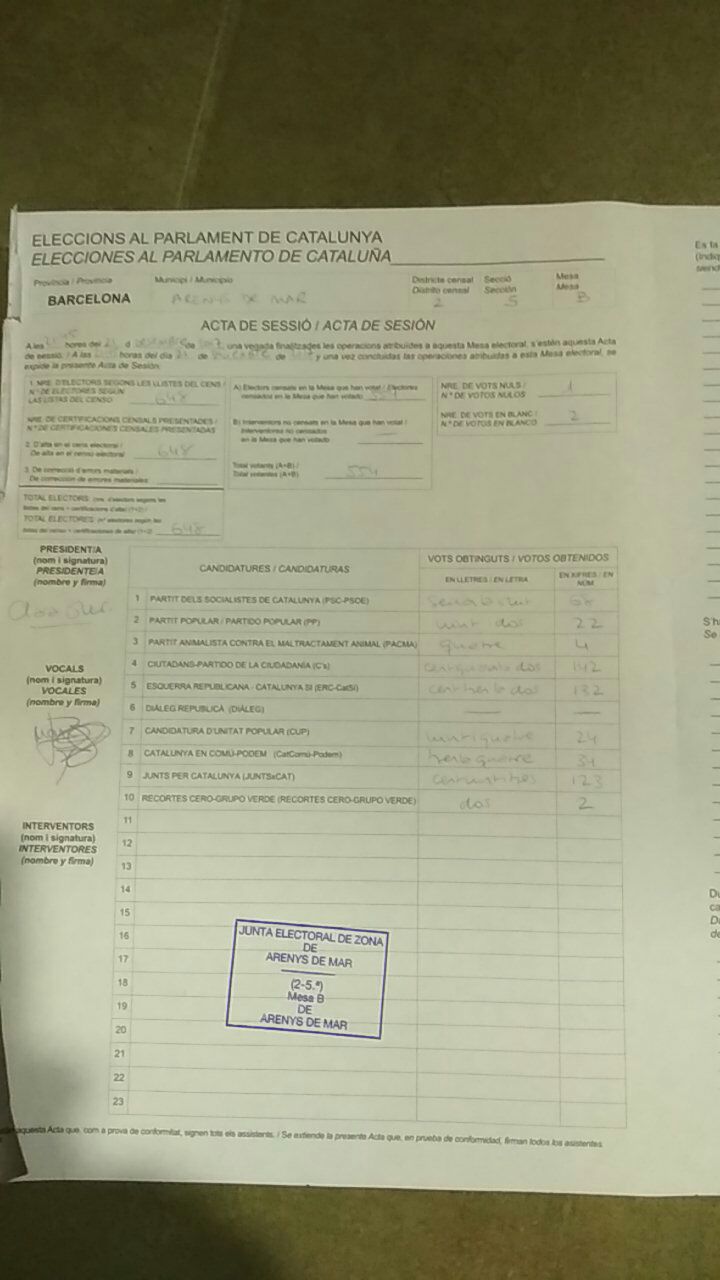 ELECCIONS AL PARLAMENT DE CATALUNYA
ELECCIONES AL PARLAMENTO DE CATALUÑA
Província / Provincia Municipi / Municipio Districte censal Secció Mesa
Distrito censal Sección Mesa
BARCELONA ARENYS DE MAR 2 5 B
ACTA DE SESSIÓ / ACTA DE SESIÓN
A les hores del 21 d de una vegada finalitzades les operacions atribuïdes a aquesta Mesa electoral, s'estén aquesta Acta
de sessió. / A las horas del día 21 de de y una vez concluidas las operaciones atribuidas a esta Mesa electoral, se
expide la presente Acta de Sesión.
1. NRE. D'ELECTORS SEGONS LES LLISTES DEL CENS /
N.º DE ELECTORES SEGÚN
LAS LISTAS DEL CENSO 648
NRE. DE CERTIFICACIONS CENSALS PRESENTADES /
N.º DE CERTIFICACIONES CENSALES PRESENTADAS
2. D'alta en el cens electoral /
De alta en el censo electoral 648
3. De correcció d'errors materials /
De corrección de errores materiales
TOTAL ELECTORS (nre. d'electors segons les
llistes del cens + certificacions d'alta) (1+2) /
TOTAL ELECTORES (nº electores según las
listas del censo + certificaciones de alta) (1+2) 648
A) Electors censats en la Mesa que han votat / Electores
censados en la Mesa que han votado 554
B) Interventors no censats en la Mesa que han votat /
Interventores no censados
en la Mesa que han votado
Total votants (A+B) /
Total votantes (A+B) 554
NRE. DE VOTS NULS / 1
N.º DE VOTOS NULOS
NRE. DE VOTS EN BLANC / 2
N.º DE VOTOS EN BLANCO
PRESIDENT/A
(nom i signatura)
PRESIDENTE/A
(nombre y firma)
VOCALS
(nom i signatura)
VOCALES
(nombre y firma)
INTERVENTORS
(nom i signatura)
INTERVENTORES
(nombre y firma)
CANDIDATURES / CANDIDATURAS VOTS OBTINGUTS / VOTOS OBTENIDOS
EN LLETRES / EN LETRA EN XIFRES / EN NÚM
1 PARTIT DELS SOCIALISTES DE CATALUNYA (PSC-PSOE) 68
2 PARTIT POPULAR / PARTIDO POPULAR (PP) vint dos 22
3 PARTIT ANIMALISTA CONTRA EL MALTRACTAMENT ANIMAL (PACMA) quatre 4
4 CIUTADANS-PARTIDO DE LA CIUDADANÍA (C's) 142
5 ESQUERRA REPUBLICANA - CATALUNYA SI (ERC-CatSí) 132
6 DIÀLEG REPUBLICÀ (DIÀLEG) — —
7 CANDIDATURA D'UNITAT POPULAR (CUP) 24
8 CATALUNYA EN COMÚ-PODEM (CatComú-Podem) 34
9 JUNTS PER CATALUNYA (JUNTSxCAT) 123
10 RECORTES CERO-GRUPO VERDE (RECORTES CERO-GRUPO VERDE) dos 2
11
12
13
14
15
16
17
18
19
20
21
22
23
JUNTA ELECTORAL DE ZONA
DE
ARENYS DE MAR
(2-5.ª)
Mesa B
DE
ARENYS DE MAR
aquesta Acta que, com a prova de conformitat, signen tots els assistents. / Se extiende la presente Acta que, en prueba de conformidad, firman todos los asistentes.